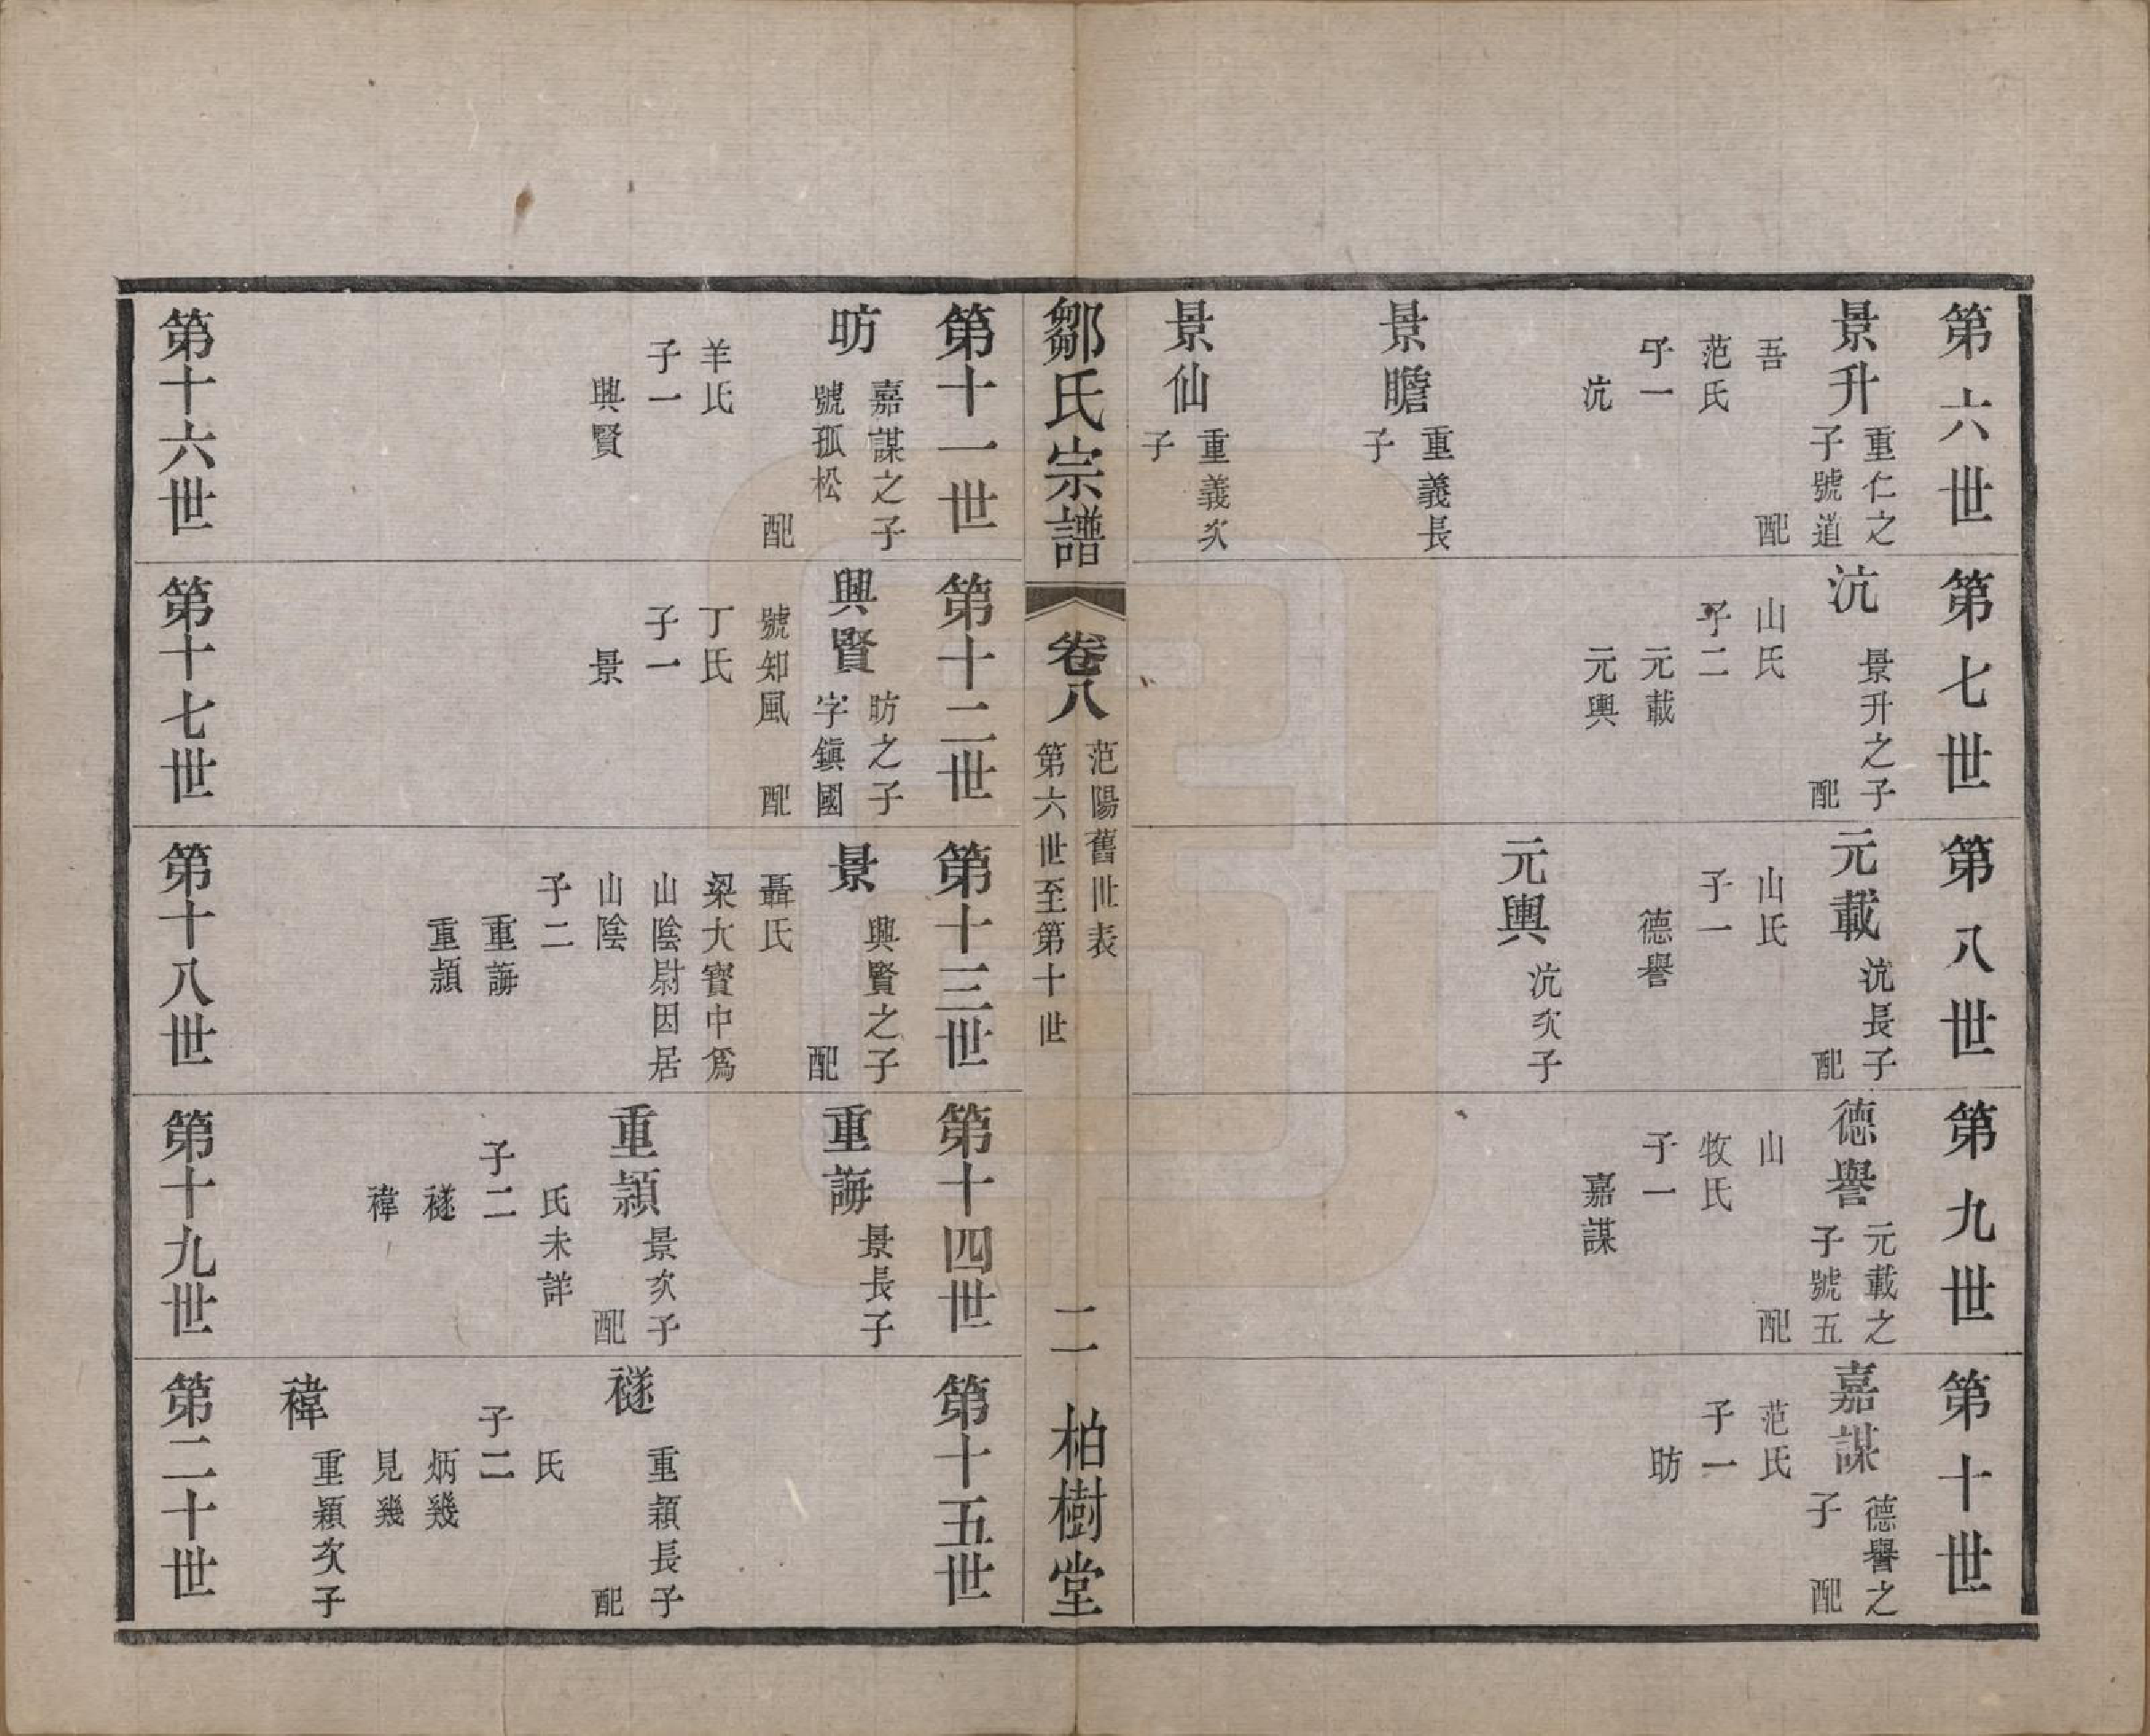 第六世
景升
重仁之
子號道
吾　配
范氏
子一
沆
景瞻
重義長
子
景仙
重義次
子
第七世
沆
景升之子
配
山氏
子二
元載
元輿
第八世
元載
沆長子
配
山氏
子一
德譽
元輿
沆次子
第九世
德譽
元載之
子號五
山　配
牧氏
子一
嘉謀
第十世
嘉謀
德譽之
子　配
范氏
子一
昉
鄒氏宗譜
卷八
范陽舊世表
第六世至第十世
二
柏樹堂
第十一世
昉
嘉謀之子
號孤松
配
羊氏
子一
興賢
第十二世
興賢
昉之子
字鎮國
號知風　配
丁氏
子一
景
第十三世
景
興賢之子
配
聶氏
梁大寶中爲
山陰尉因居
山陰
子二
重誨
重穎
第十四世
重誨
景長子
重穎
景次子
配
氏未詳
子二
襚
褘
第十五世
襚
重穎長子
配
氏
子二
炳幾
見幾
褘
重穎次子
第十六世
第十七世
第十八世
第十九世
第二十世